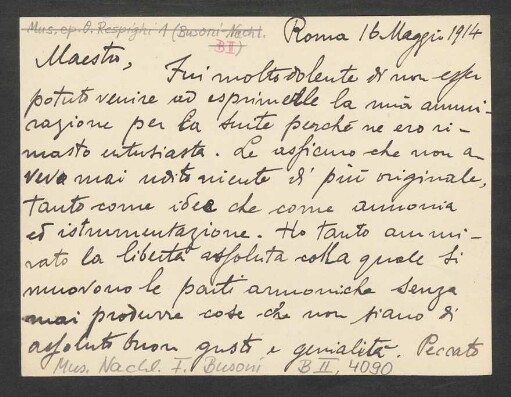 Mus. ep. O. Respighi 1 (Busoni-Nachl.
B II)
Roma 16 Maggio 1914
Maestro, Fui molto dolente di non esser
potuto venire ad esprimerle la mia ammi-
razione per la suite perché ne ero ri-
masto entusiasta. Le assicuro che non a-
vevo mai udito niente di più originale,
tanto come idea che come armonia
ed istrumentazione. Ho tanto ammi-
rato la libertà assoluta colla quale si
muovono le parti armoniche senza
mai produrre cose che non siano di
assoluto buon gusto e genialità. Peccato
Mus. Nachl. F. Busoni B II, 4090